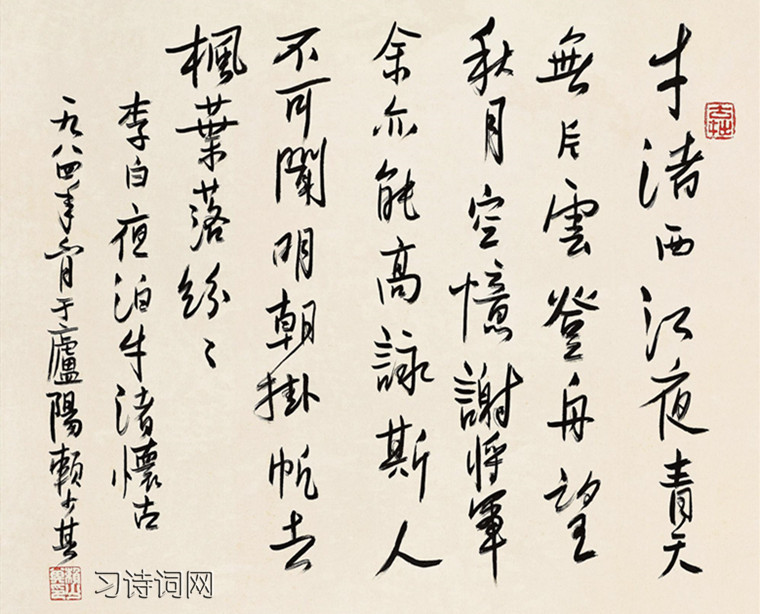 牛渚西江夜青天
無片雲登舟望
秋月空憶謝将軍
余亦能高詠斯人
不可聞明朝掛帆去
楓葉落紛〻
李白夜泊牛渚懷古
一九八四年育于廬陽賴少其
习诗词网